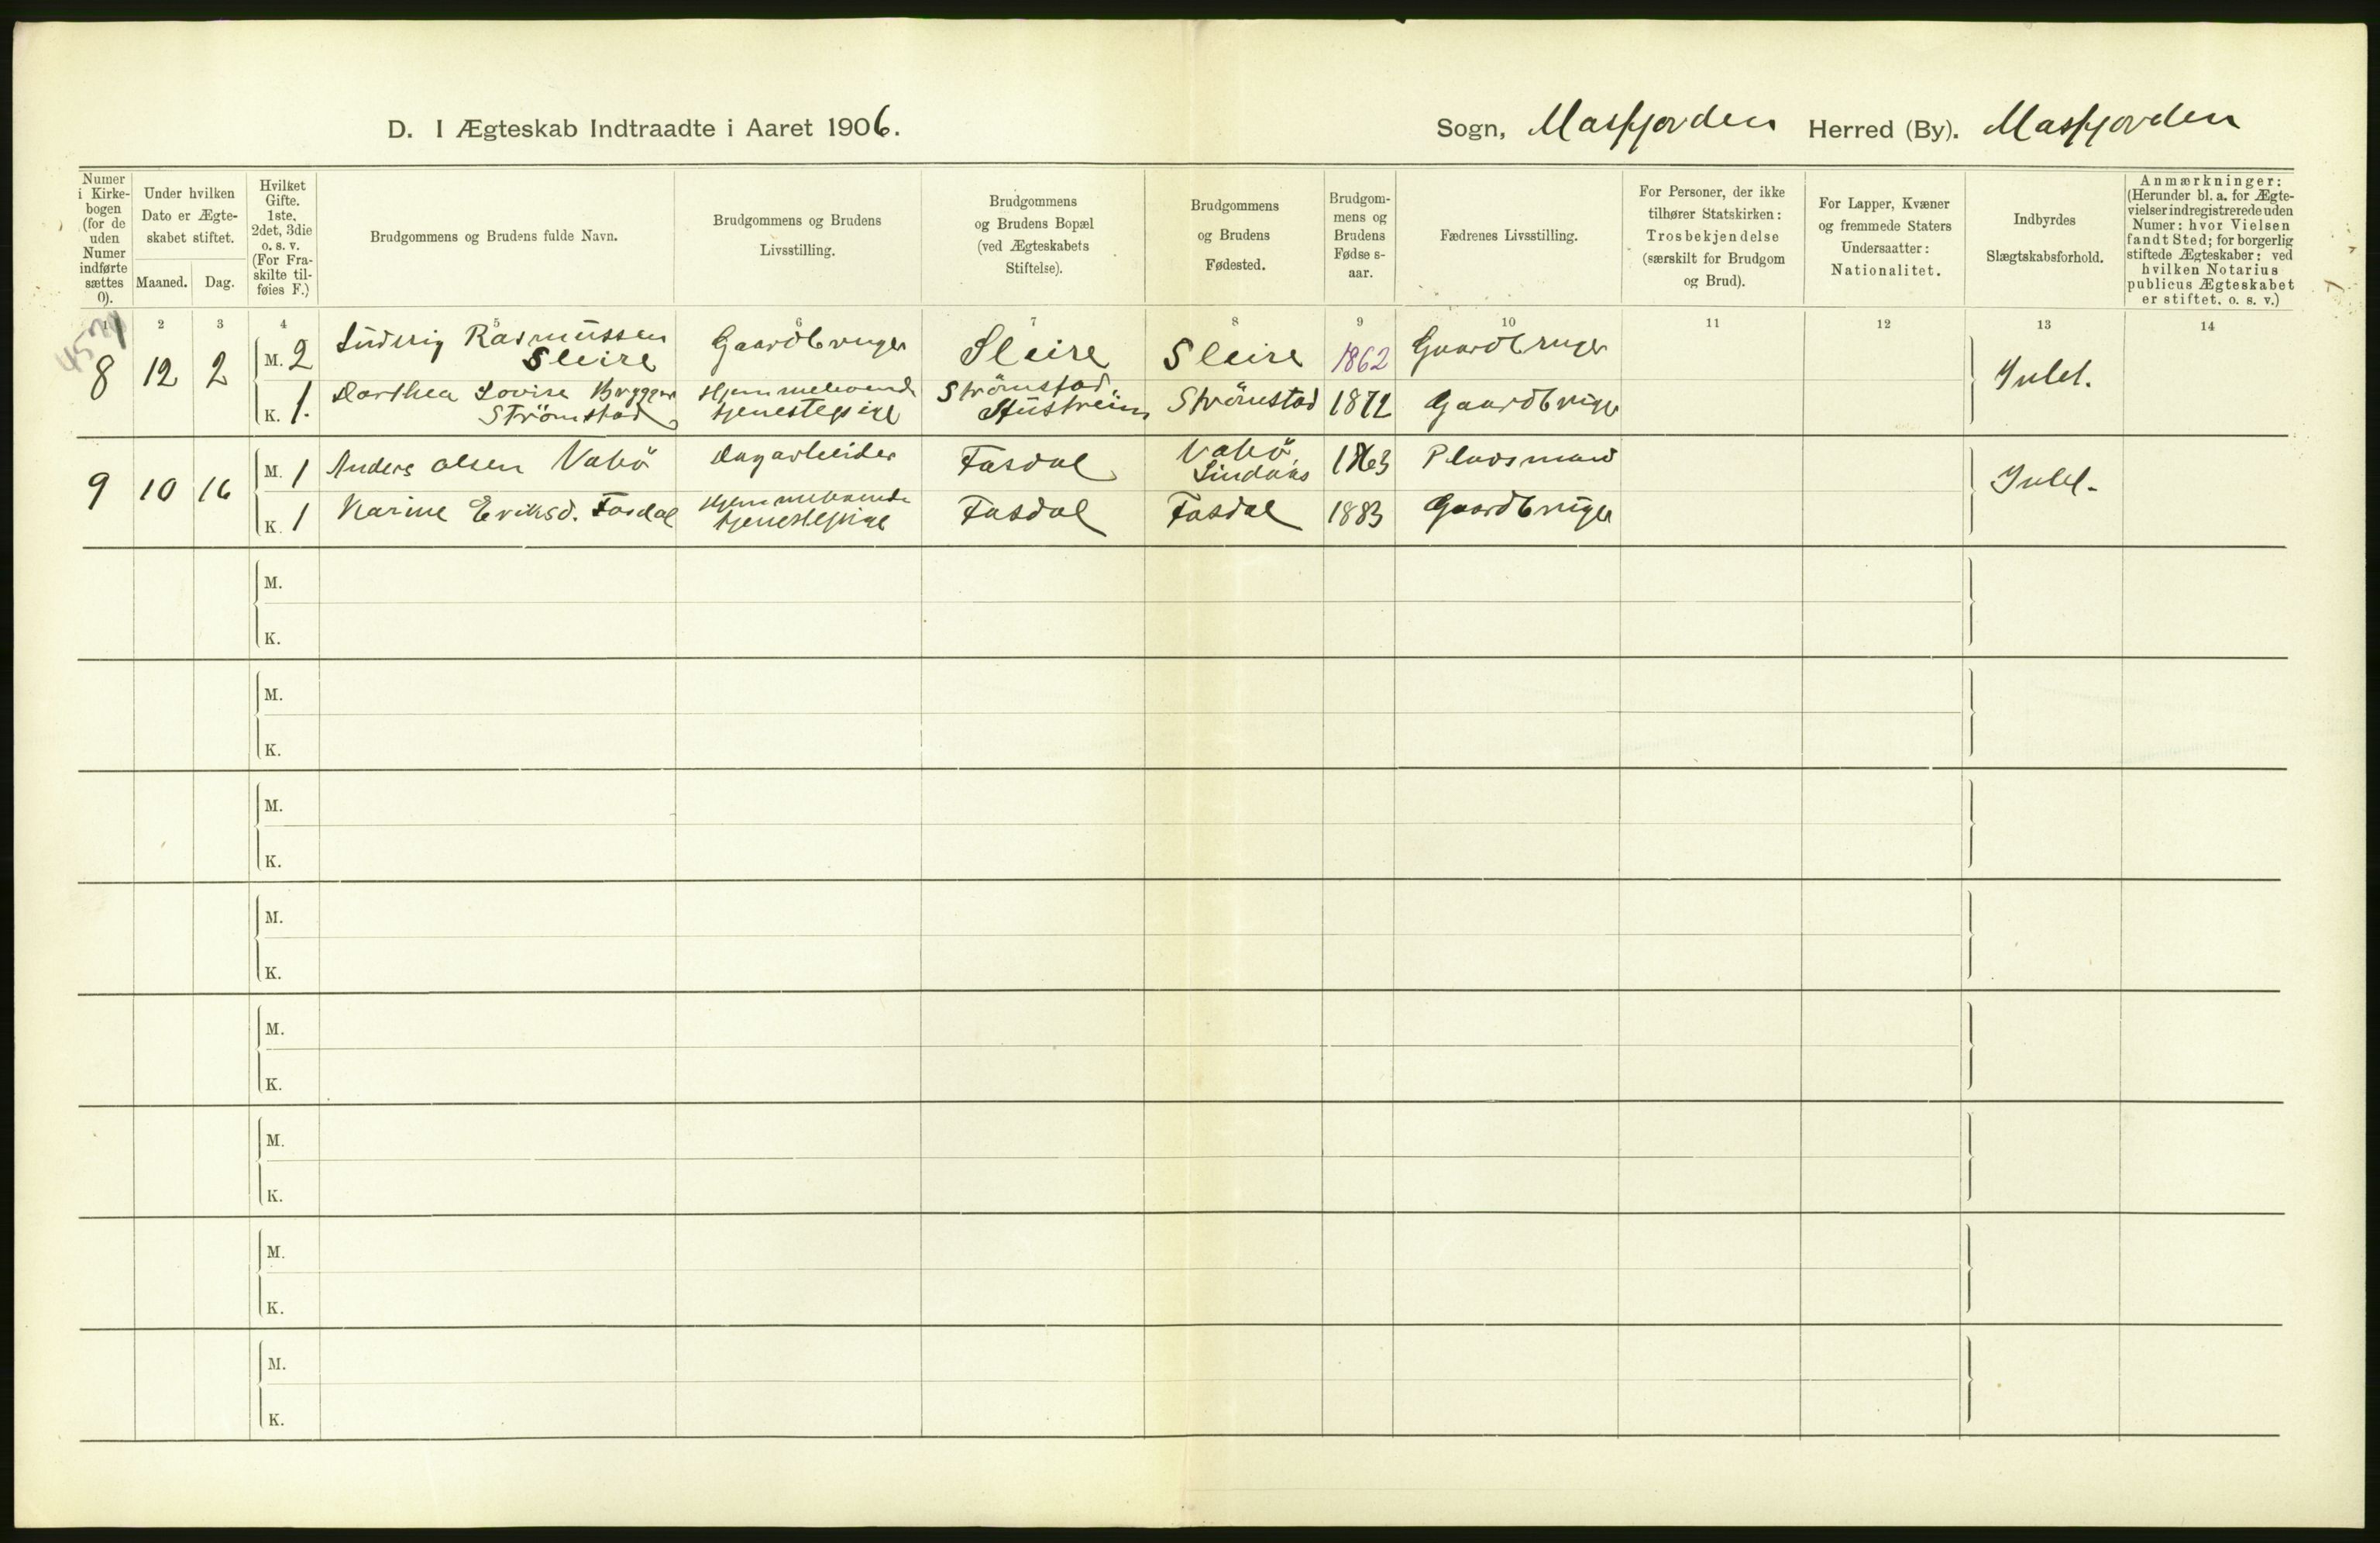 D. I Ægteskab Indtraadte i Aaret 1906.
Sogn, Masfjorden Herred (By). Masfjorden
Numer
i Kirke-
bogen
(for de
uden
Numer
indførte
sættes
0).
Under hvilken
Dato er Ægte-
skabet stiftet.
Maaned. Dag.
Hvilket
Gifte.
1ste,
2det, 3die
o. s. v.
(For Fra-
skilte til-
føies F.)
Brudgommens og Brudens fulde Navn.
Brudgommens og Brudens
Livsstilling.
Brudgommens
og Brudens Bopæl
(ved Ægteskabets
Stiftelse).
Brudgommens
og Brudens
Fødested.
Brudgom-
mens og
Brudens
Fødses-
aar.
Fædrenes Livsstilling.
For Personer, der ikke
tilhører Statskirken:
Trosbekjendelse
(særskilt for Brudgom
og Brud).
For Lapper, Kvæner
og fremmede Staters
Undersaatter:
Nationalitet.
Indbyrdes
Slægtskabsforhold.
Anmærkninger:
(Herunder bl. a. for Ægte-
vielser indregistrerede uden
Numer: hvor Vielsen
fandt Sted; for borgerlig
stiftede Ægteskaber: ved
hvilken Notarius
publicus Ægteskabet
er stiftet, o. s. v.)
1 2 3 4 5 6 7 8 9 10 11 12 13 14
8 12 2
M. 2 Ludvig Rasmussen
Sleire
Gaardbruger Sleire Sleire 1862 Gaardbruger
Intet.
K. 1. Dorthea Lovise
Strömstad
Hjemmeværende
tjenestepige
Strömstad,
Strömstad 1872 Gaardbruger
9 10 16
M. 1 Anders Olsen Vabö Dagarbeider Fasdal
Vabö,
Lindaas
1863 Pladsmand
Intet.
K. 1 Karine Eriksd. Fasdal
Hjemmeværende
tjenestepige
Fasdal Fasdal 1883 Gaardbruger
M.
K.
M.
K.
M.
K.
M.
K.
M.
K.
M.
K.
M.
K.
M.
K.